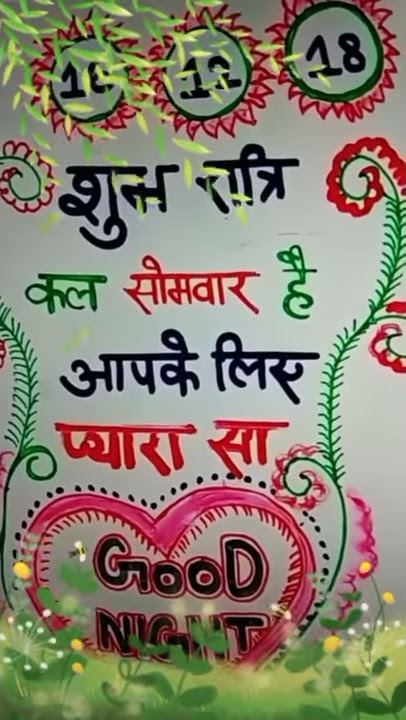 16 12 18
शुभ रात्रि
कल सोमवार है
आपके लिए
प्यारा सा
GOOD
NIGHT